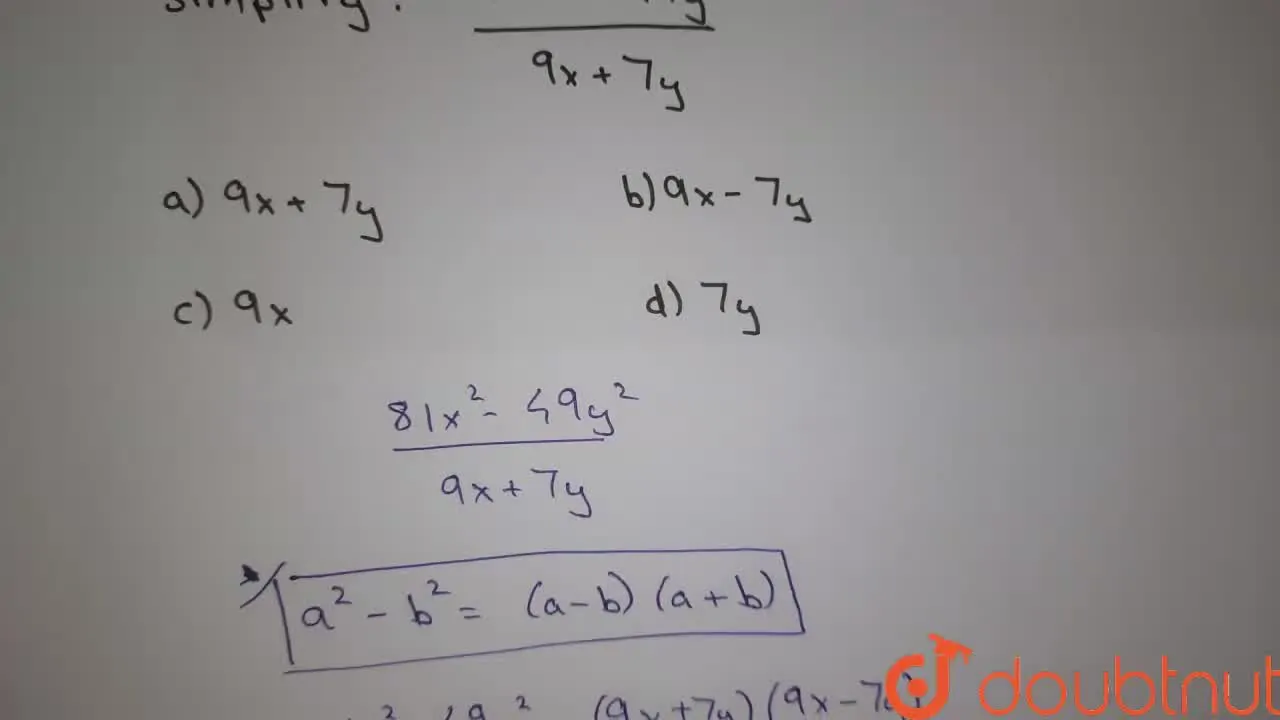 simplify :
9x + 7y
a) 9x + 7y
b) 9x - 7y
c) 9x
d) 7y
81x² - 49y²
9x + 7y
a² - b² = (a - b) (a + b)
(9x + 7y) (9x - 7y)
doubtnut